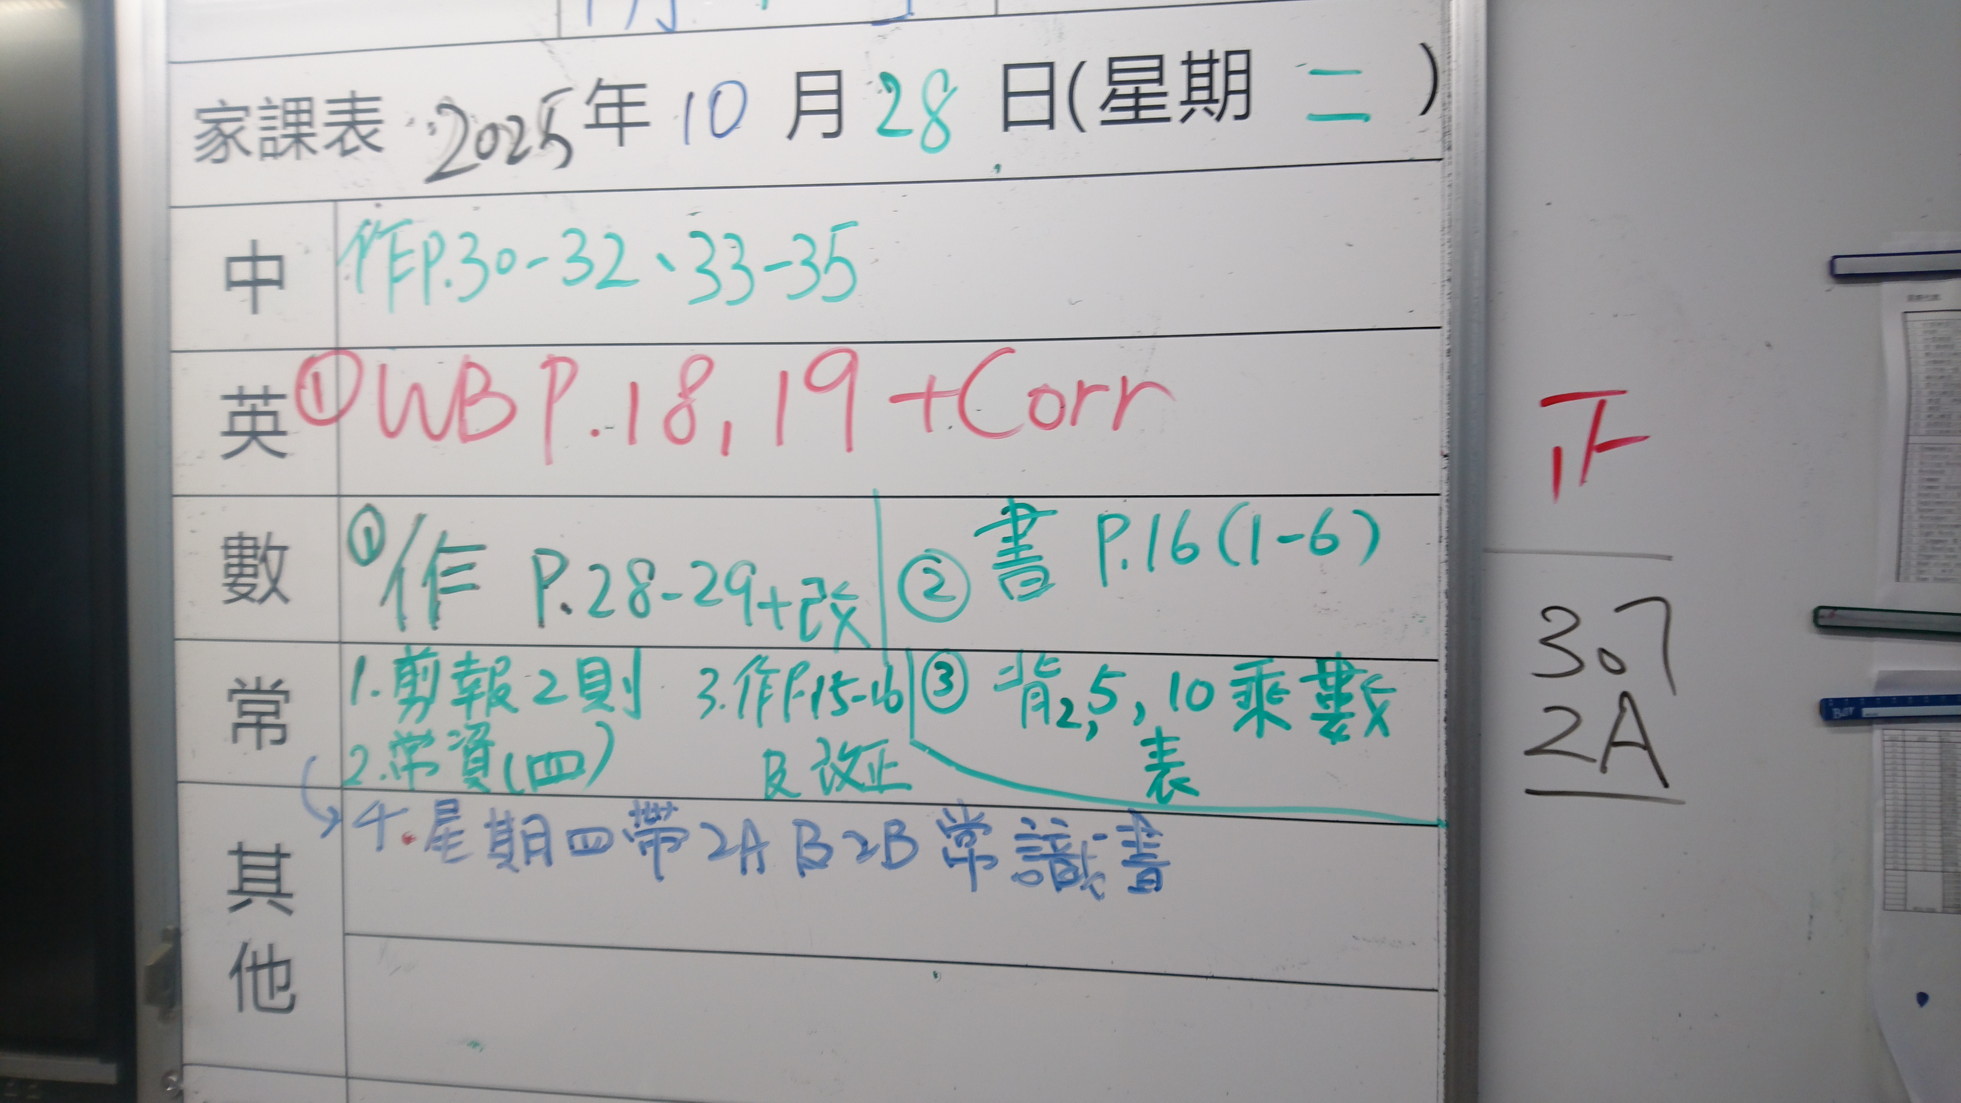 家課表 2025年10月28日(星期二)
中 作P.30-32、33-35
英 ①WB P.18,19 +Corr
數 ①作 P.28-29+改 ②書 P.16(1-6)
③背2,5,10乘數
表
常 1.剪報2則 3.作P.15-16
2.常資(四) 及改正
4.星期四帶2A及2B常識書
其他
正
3.7
2A